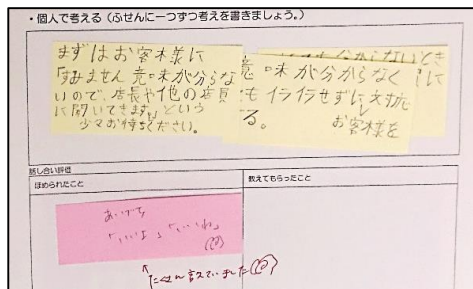 ・個人で考える(ふせんに一つずつ考えを書きましょう。)
まずはお客様に
「すみません意味が分らな
いので、店長や他の店員
に聞いてきます。」という
少々お待ちください。
らないとき
意味が分からなく
もイライラせずに対抗
る。
お客様を
話し合い評価
ほめられたこと
教えてもらったこと
あいづち
「いいよ」「いいね」
↑
たくさん言えていました